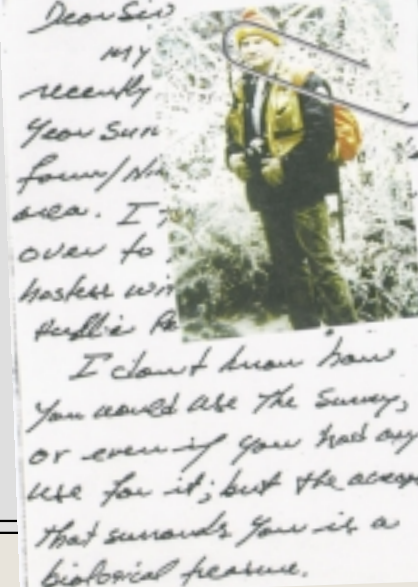 Dear Sir
my
recently
year sur
farm/
area. I
over to
hostess win
Public Re
I don't know how
you would use the Survey,
or even if you had any
use for it; but the
that surrounds you is a
biological treasure.